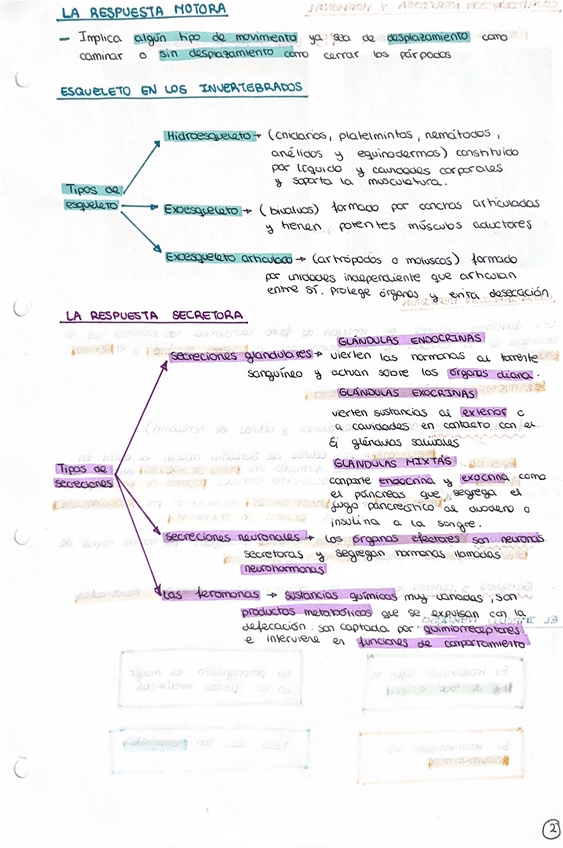 LA RESPUESTA MOTORA
- Implica algún tipo de movimiento ya sea de desplazamiento como
caminar o sin desplazamiento como cerrar los párpados
ESQUELETO EN LOS INVERTEBRADOS
Tipos de
esqueleto
Hidroesqueleto → (cnidarios, platelmintos, nemátodos,
anélidos y equinodermos) constituido
por líquido y cavidades corporales
y soporta la musculatura.
Exoesqueleto → (bivalvos) formado por conchas articuladas
y tienen potentes músculos aductores
Exoesqueleto articulado → (artrópodos o moluscos) formado
por unidades independiente que articulan
entre sí. Protege órganos y evita desecación
LA RESPUESTA SECRETORA
Tipos de
secreciones
secreciones glandulares →
GLÁNDULAS ENDOCRINAS
vierten las hormonas al torrente
sanguíneo y actúan sobre los órganos diana.
GLÁNDULAS EXOCRINAS
vierten sustancias al exterior o
a cavidades en contacto con el
Ej glándulas salivales
GLÁNDULAS MIXTAS
comparte endocrina y exocrina como
el páncreas que segrega el
jugo pancreático al duodeno o
insulina a la sangre.
secreciones neuronales → los órganos efectores son neuronas
secretoras y segregan hormonas llamadas
neurohormonas
Las feromonas → sustancias químicas muy variadas, son
productos metabólicos que se expulsan con la
defecación. son captada por quimiorreceptores
e interviene en funciones de comportamiento
2